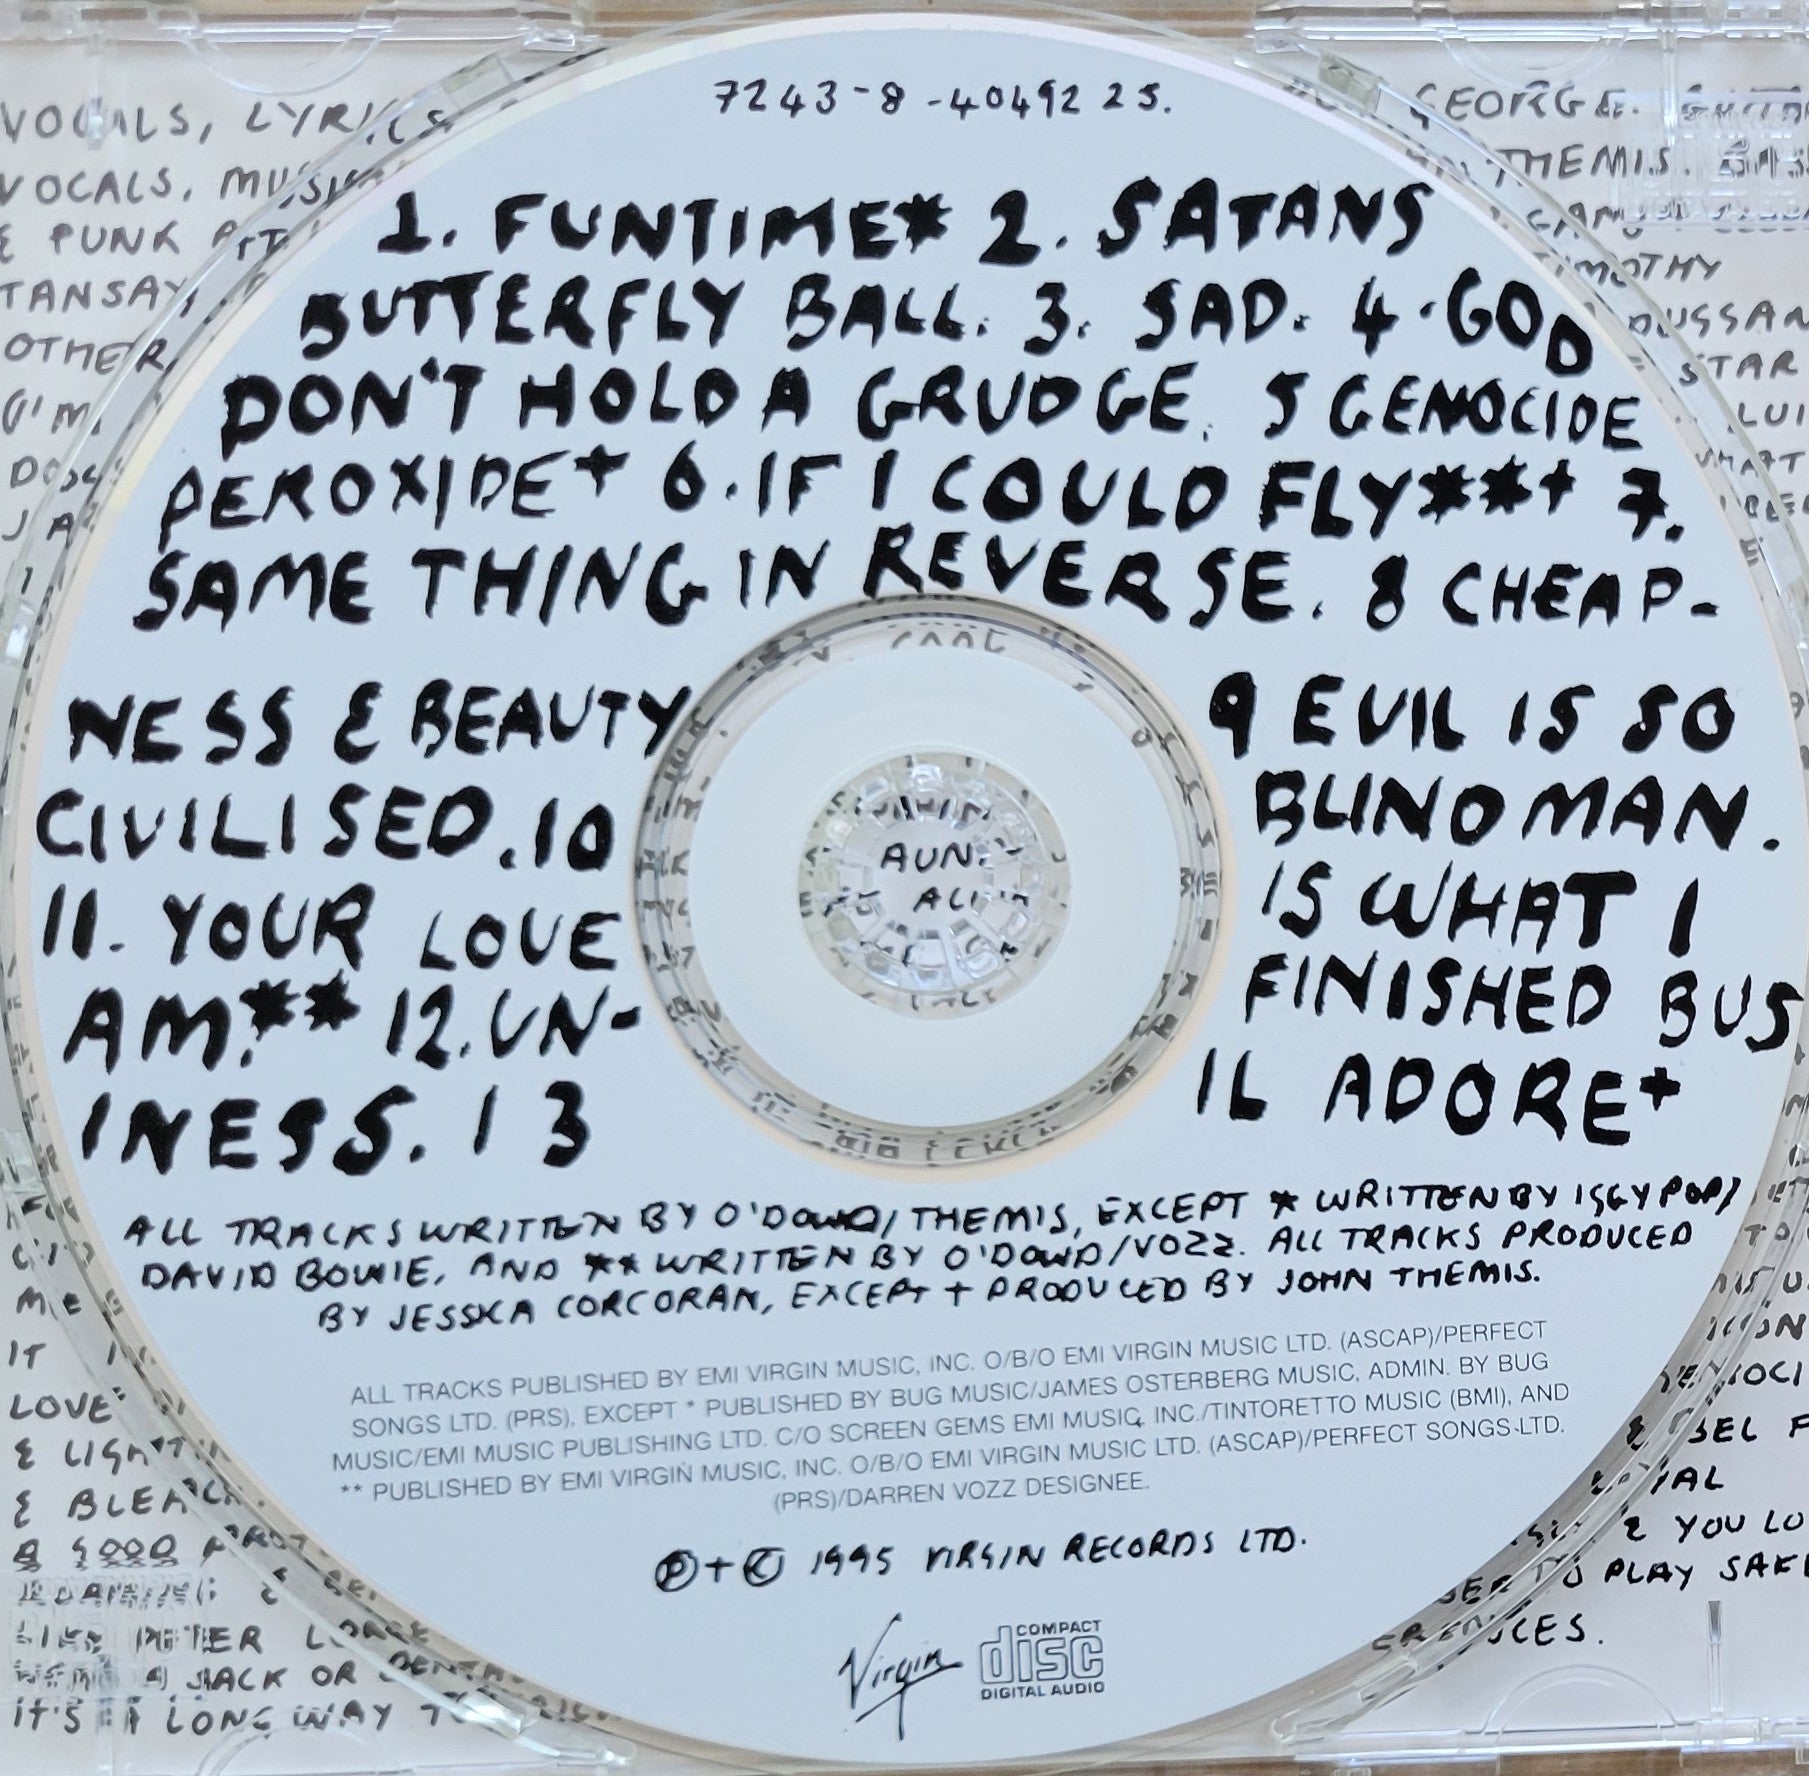 7243-8-40492 25.
1. FUNTIME* 2. SATANS
BUTTERFLY BALL. 3. SAD. 4.GOD
DON'T HOLD A GRUDGE. 5 GENOCIDE
PEROXIDE+ 6. IF I COULD FLY**+ 7.
SAME THING IN REVERSE. 8 CHEAP-
NESS & BEAUTY. 9 EVIL IS SO
CIVILISED. 10 BLINDMAN.
11. YOUR LOVE IS WHAT I
AM.** 12. UN- FINISHED BUS
INESS. 13 IL ADORE+
ALL TRACKS WRITTEN BY O'DOWD/THEMIS, EXCEPT * WRITTEN BY IGGY POP/
DAVID BOWIE, AND ** WRITTEN BY O'DOWD/VOZZ. ALL TRACKS PRODUCED
BY JESSICA CORCORAN, EXCEPT + PRODUCED BY JOHN THEMIS.
ALL TRACKS PUBLISHED BY EMI VIRGIN MUSIC, INC. O/B/O EMI VIRGIN MUSIC LTD. (ASCAP)/PERFECT
SONGS LTD. (PRS), EXCEPT * PUBLISHED BY BUG MUSIC/JAMES OSTERBERG MUSIC, ADMIN. BY BUG
MUSIC/EMI MUSIC PUBLISHING LTD. C/O SCREEN GEMS EMI MUSIC, INC./TINTORETTO MUSIC (BMI), AND
** PUBLISHED BY EMI VIRGIN MUSIC, INC. O/B/O EMI VIRGIN MUSIC LTD. (ASCAP)/PERFECT SONGS LTD.
(PRS)/DARREN VOZZ DESIGNEE.
Ⓟ+© 1995 VIRGIN RECORDS LTD.
Virgin
COMPACT
disc
DIGITAL AUDIO
VOCALS, LYRICS
VOCALS,
& PUNK
TANSAY
OTHER
IT
LOVE
&
& BLEACH.
LORRE
A JACK OR
IT'S A LONG WAY
GEORGE.
THEMIS.
TIMOTHY
STAR
& YOU
TO PLAY SAFE